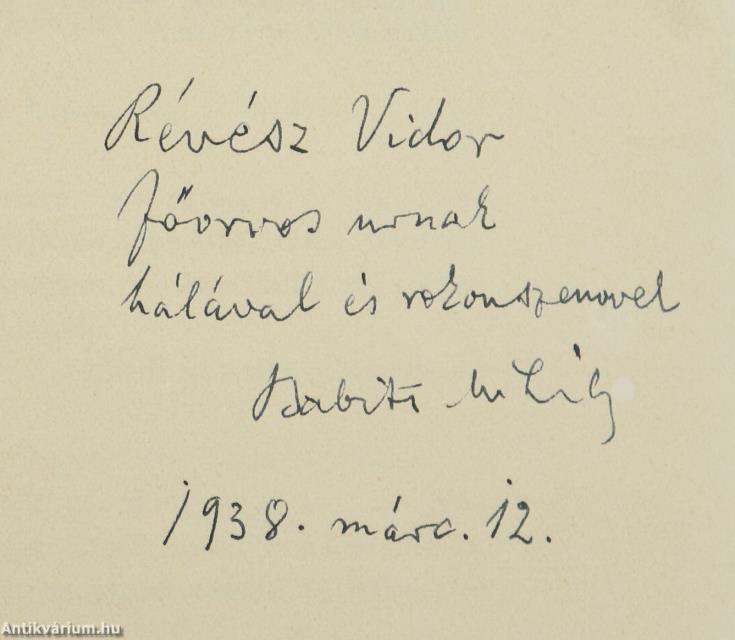 Révész Vidor
főorvos urnak
hálával és rokonszenvvel
Babits Mihály
1938. márc. 12.
Antikvárium.hu